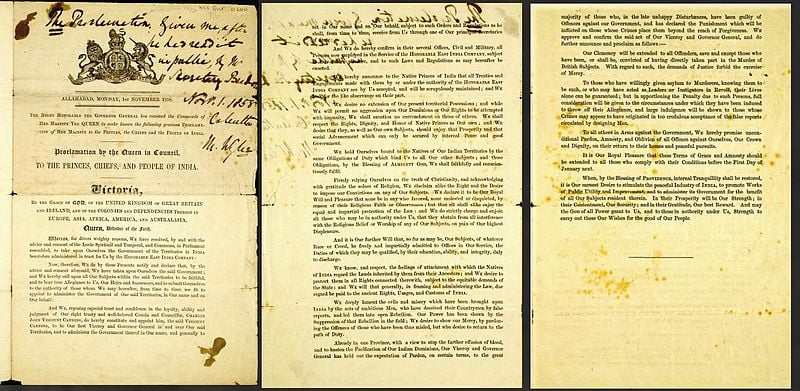 The Proclamation, Given me after
he has read it
in public, by Mr
Novr. 1. 1858
Calcutta
ALLAHABAD, MONDAY, 1st NOVEMBER 1858.
THE RIGHT HONORABLE THE GOVERNOR GENERAL has received the Commands of
HER MAJESTY THE QUEEN to make known the following gracious PROCLAMA-
TION of HER MAJESTY to the PRINCES, the CHIEFS and the PEOPLE OF INDIA.
Proclamation by the Queen in Council,
TO THE PRINCES, CHIEFS, AND PEOPLE OF INDIA.
Victoria,
BY THE GRACE OF GOD, OF THE UNITED KINGDOM OF GREAT BRITAIN
AND IRELAND, AND OF THE COLONIES AND DEPENDENCIES THEREOF IN
EUROPE, ASIA, AFRICA, AMERICA, AND AUSTRALASIA,
Queen, Defender of the Faith.
WHEREAS, for divers weighty reasons, We have resolved, by and with the
advice and consent of the Lords Spiritual and Temporal, and Commons, in Parliament
assembled, to take upon Ourselves the Government of the Territories in INDIA
heretofore administered in trust for Us by the HONORABLE EAST INDIA COMPANY:
Now, therefore, We do by these Presents notify and declare that, by the
advice and consent aforesaid, We have taken upon Ourselves the said Government;
and We hereby call upon all Our Subjects within the said Territories to be faithful,
and to bear true Allegiance to Us, Our Heirs and Successors, and to submit themselves
to the authority of those whom We may hereafter, from time to time, see fit to
appoint to administer the Government of Our said Territories, in Our name and on
Our behalf:
And We, reposing especial trust and confidence in the loyalty, ability and
judgment of Our right trusty and well-beloved Cousin and Councillor, CHARLES
JOHN VISCOUNT CANNING, do hereby constitute and appoint him, the said VISCOUNT
CANNING, to be Our first Viceroy and Governor General in and over Our said
Territories, and to administer the Government thereof in Our name, and generally to
act in Our name and on Our behalf, subject to such Orders and Regulations as he
shall, from time to time, receive from Us through one of Our principal Secretaries
And We do hereby confirm in their several Offices, Civil and Military, all
Persons now employed in the Service of the HONORABLE EAST INDIA COMPANY, subject
to Our future pleasure, and to such Laws and Regulations as may hereafter be
enacted.
We hereby announce to the Native Princes of India that all Treaties and
Engagements made with them by or under the authority of the HONORABLE EAST
INDIA COMPANY are by Us accepted, and will be scrupulously maintained; and We
look for the like observance on their part.
We desire no extension of Our present territorial Possessions; and while
We will permit no aggression upon Our Dominions or Our Rights to be attempted
with impunity, We shall sanction no encroachment on those of others. We shall
respect the Rights, Dignity, and Honor of Native Princes as Our own; and We
desire that they, as well as Our own Subjects, should enjoy that Prosperity and that
social Advancement which can only be secured by internal Peace and good
Government.
We hold Ourselves bound to the Natives of Our Indian Territories by the
same Obligations of Duty which bind Us to all Our other Subjects; and those
Obligations, by the Blessing of ALMIGHTY GOD, We shall faithfully and conscien-
tiously fulfil.
Firmly relying Ourselves on the truth of Christianity, and acknowledging
with gratitude the solace of Religion, We disclaim alike the Right and the Desire
to impose our Convictions on any of Our Subjects. We declare it to be Our Royal
Will and Pleasure that none be in any wise favored, none molested or disquieted, by
reason of their Religious Faith or Observances; but that all shall alike enjoy the
equal and impartial protection of the Law: and We do strictly charge and enjoin
all those who may be in authority under Us, that they abstain from all interference
with the Religious Belief or Worship of any of Our Subjects, on pain of Our highest
Displeasure.
And it is Our further Will that, so far as may be, Our Subjects, of whatever
Race or Creed, be freely and impartially admitted to Offices in Our Service, the
Duties of which they may be qualified, by their education, ability, and integrity, duly
to discharge.
We know, and respect, the feelings of attachment with which the Natives
of INDIA regard the Lands inherited by them from their Ancestors; and We desire to
protect them in all Rights connected therewith, subject to the equitable demands of
the State: and We will that generally, in framing and administering the Law, due
regard be paid to the ancient Rights, Usages, and Customs of INDIA.
We deeply lament the evils and misery which have been brought upon
INDIA by the acts of ambitious Men, who have deceived their Countrymen by false
reports, and led them into open Rebellion. Our Power has been shewn by the
Suppression of that Rebellion in the field; We desire to shew Our Mercy, by pardon-
ing the Offences of those who have been thus misled, but who desire to return to the
path of Duty.
Already in one Province, with a view to stop the further effusion of blood,
and to hasten the Pacification of Our Indian Dominions, Our Viceroy and Governor
General has held out the expectation of Pardon, on certain terms, to the great
majority of those who, in the late unhappy Disturbances, have been guilty of
Offences against our Government, and has declared the Punishment which will be
inflicted on those whose Crimes place them beyond the reach of Forgiveness. We
approve and confirm the said act of Our Viceroy and Governor General, and do
further announce and proclaim as follows:—
Our Clemency will be extended to all Offenders, save and except those who
have been, or shall be, convicted of having directly taken part in the Murder of
British Subjects. With regard to such, the demands of Justice forbid the exercise
of Mercy.
To those who have willingly given asylum to Murderers, knowing them to
be such, or who may have acted as Leaders or Instigators in Revolt, their Lives
alone can be guaranteed; but in apportioning the Penalty due to such Persons, full
consideration will be given to the circumstances under which they have been induced
to throw off their Allegiance, and large indulgence will be shown to those whose
Crimes may appear to have originated in too credulous acceptance of the false reports
circulated by designing Men.
To all others in Arms against the Government, We hereby promise uncon-
ditional Pardon, Amnesty, and Oblivion of all Offences against Ourselves, Our Crown
and Dignity, on their return to their homes and peaceful pursuits.
It is Our Royal Pleasure that these Terms of Grace and Amnesty should
be extended to all those who comply with their Conditions before the First Day of
January next.
When, by the Blessing of PROVIDENCE, internal Tranquillity shall be restored,
it is Our earnest Desire to stimulate the peaceful Industry of India, to promote Works
of Public Utility and Improvement, and to administer its Government for the benefit
of all Our Subjects resident therein. In their Prosperity will be Our Strength; in
their Contentment, Our Security; and in their Gratitude, Our best Reward. And may
the God of all Power grant to Us, and to those in authority under Us, Strength to
carry out these Our Wishes for the good of Our People.